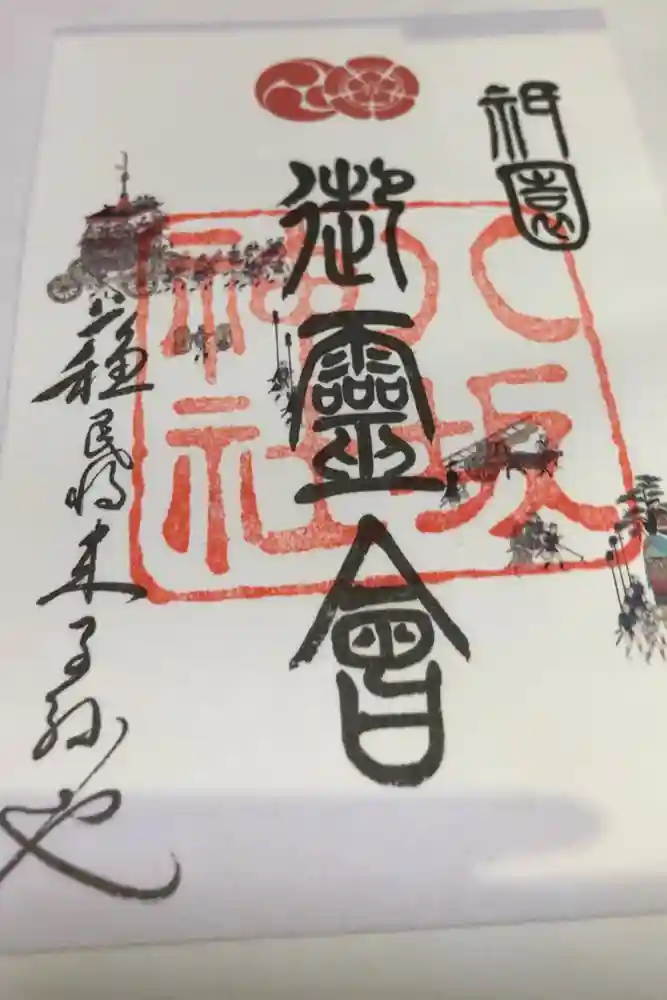 祇園
御靈會
蘓民将来子孫也
八坂神社